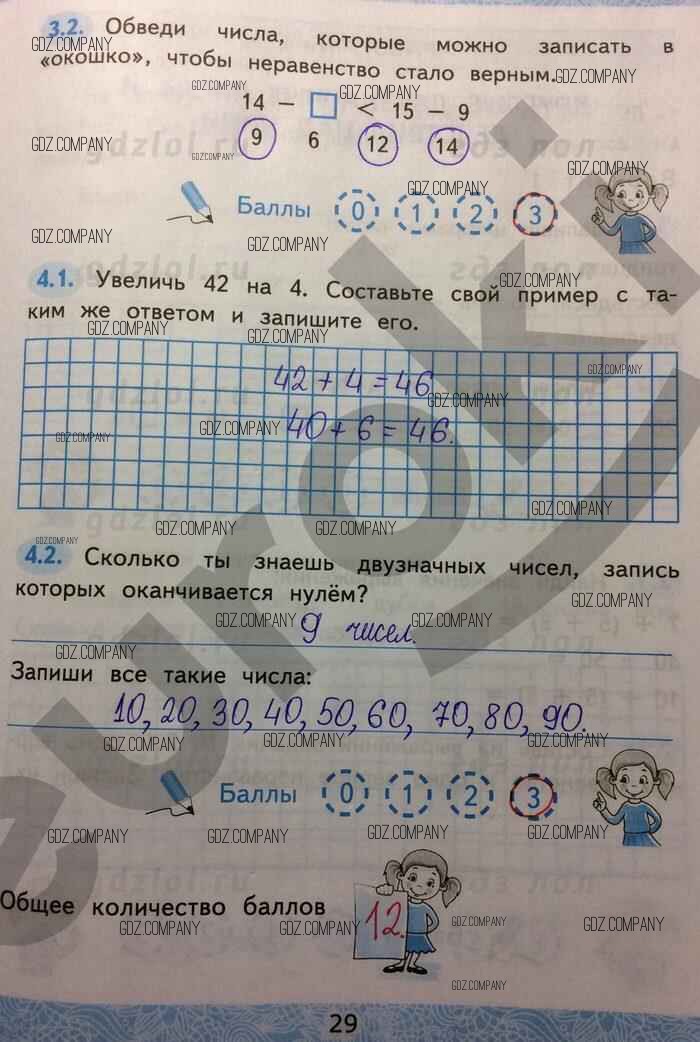 3.2. Обведи числа, которые можно записать в
«окошко», чтобы неравенство стало верным.
14 − □ < 15 − 9
9 6 12 14
Баллы 0 1 2 3
4.1. Увеличь 42 на 4. Составьте свой пример с та-
ким же ответом и запишите его.
42 + 4 = 46
40 + 6 = 46.
4.2. Сколько ты знаешь двузначных чисел, запись
которых оканчивается нулём?
9 чисел.
Запиши все такие числа:
10, 20, 30, 40, 50, 60, 70, 80, 90.
Баллы 0 1 2 3
Общее количество баллов 12.
29
GDZ.COMPANY
euroki
gdzlol.ru